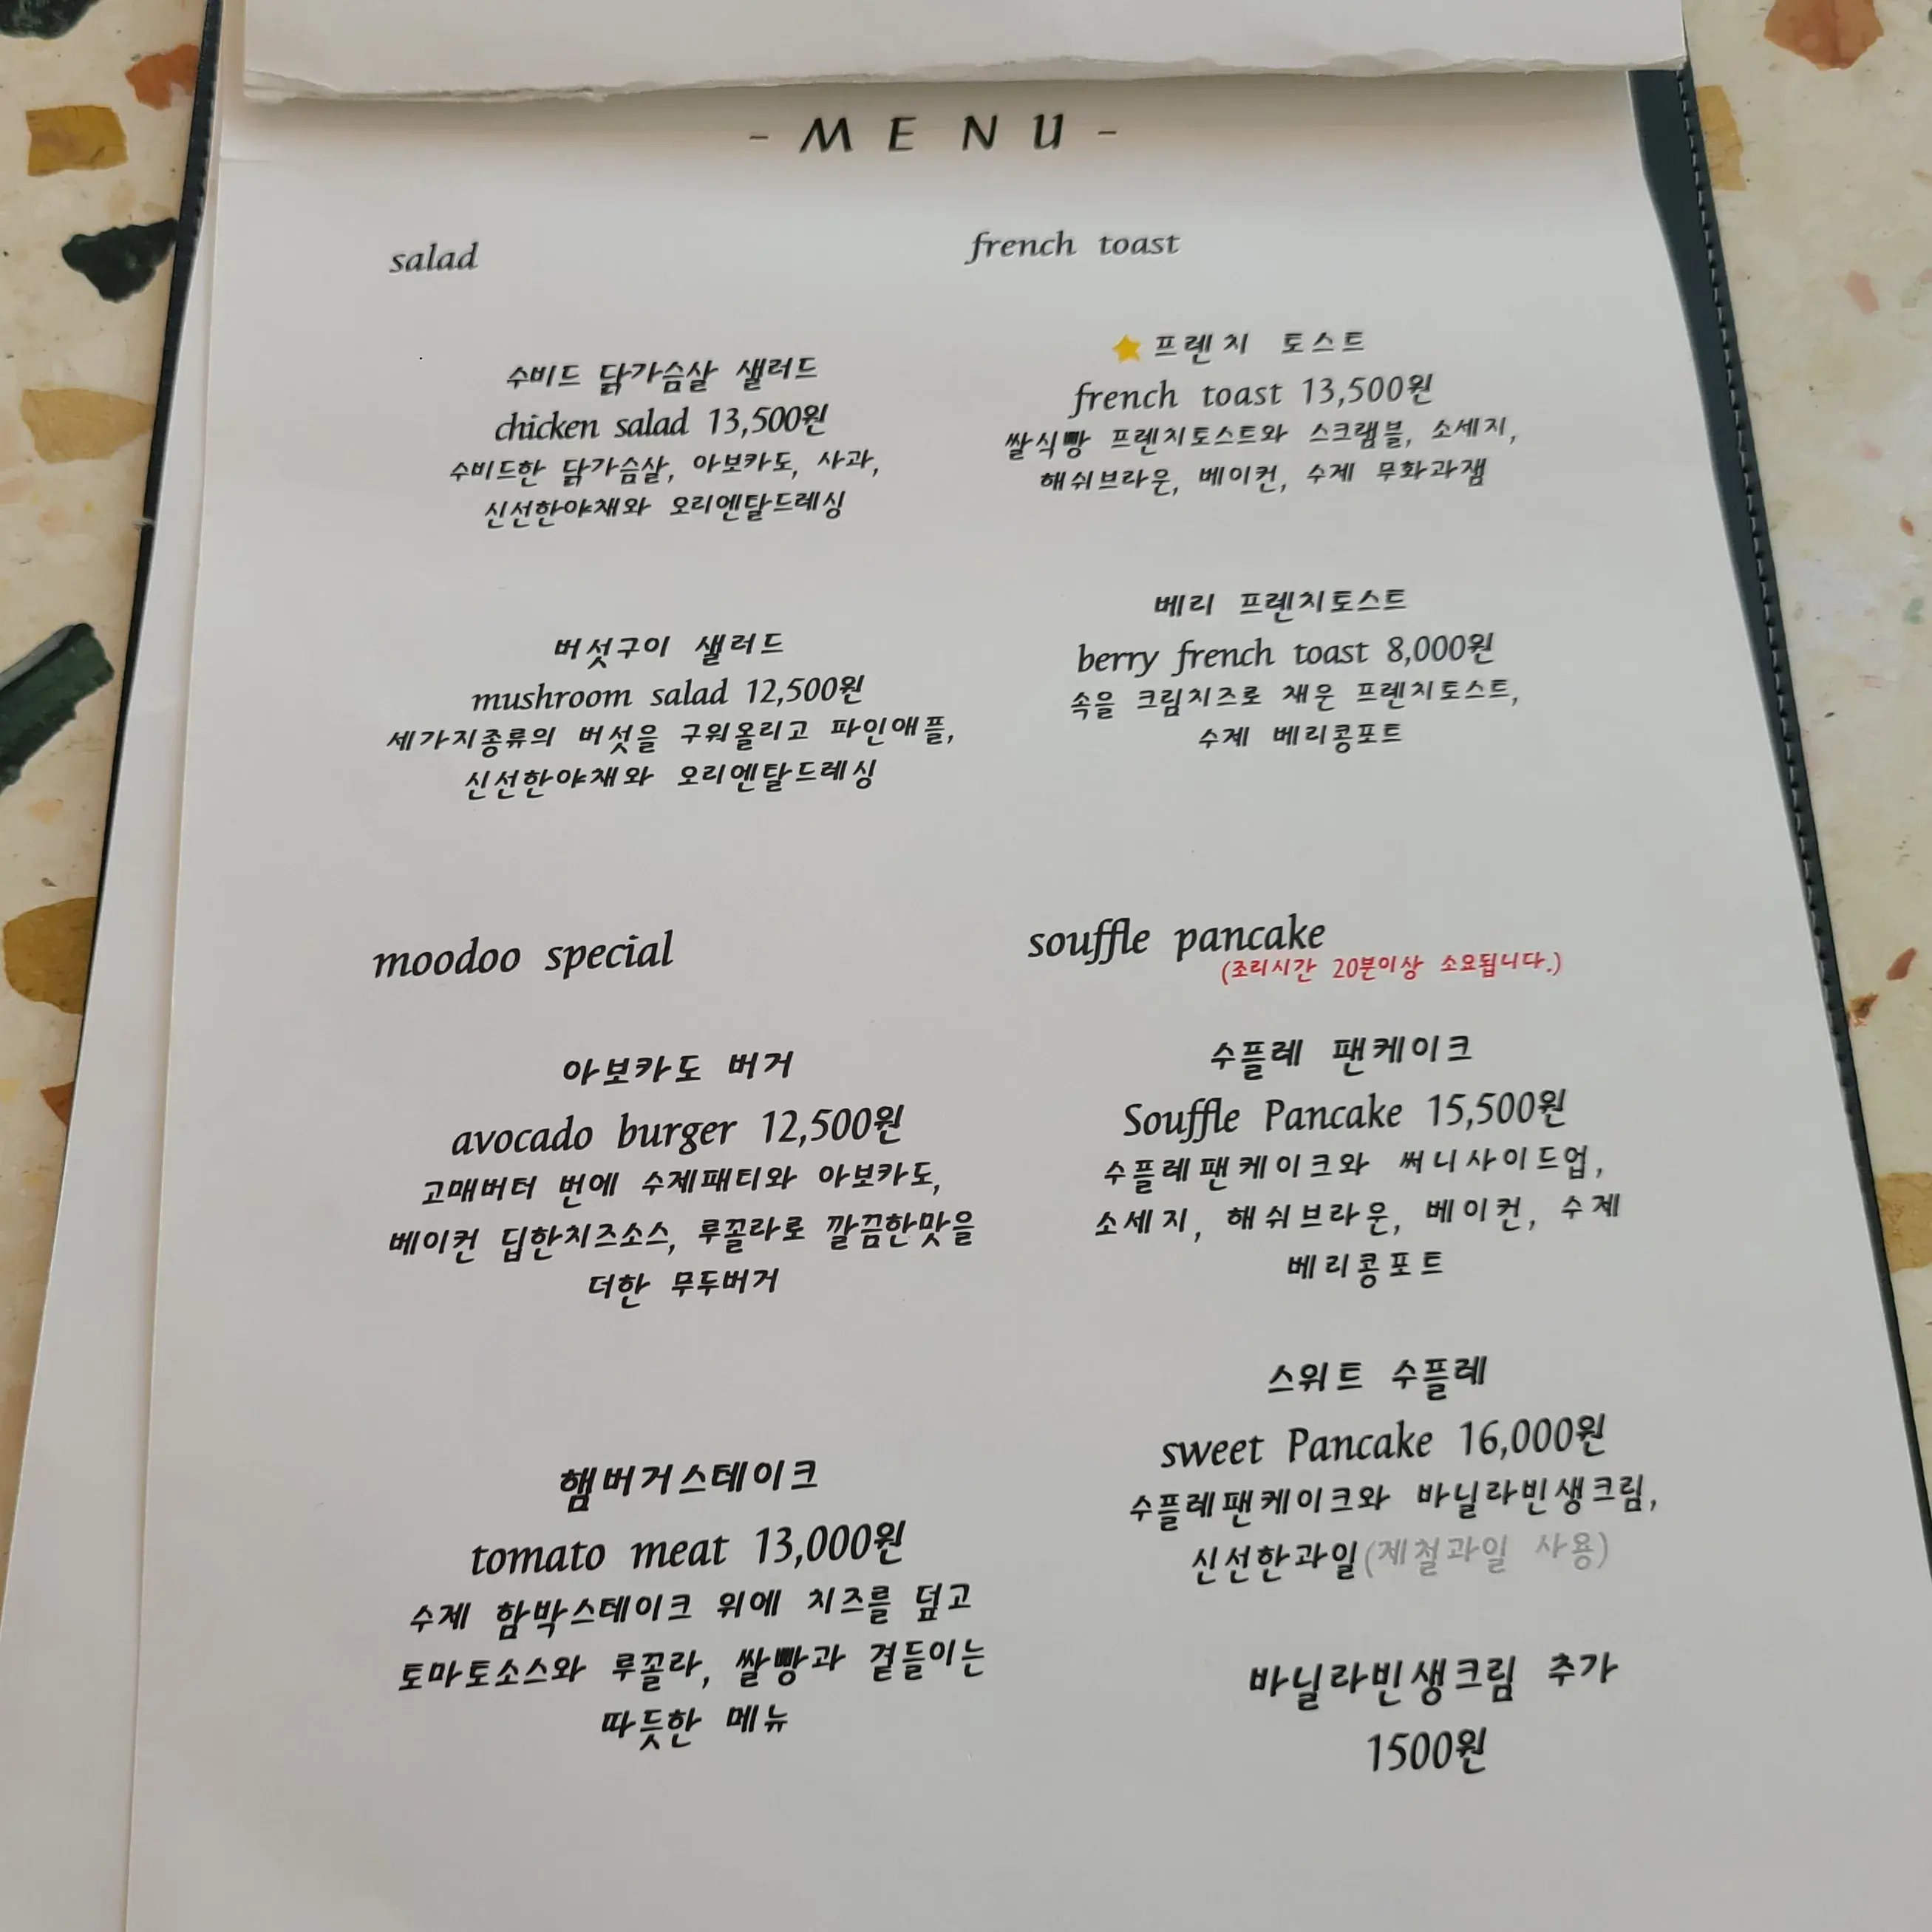 - M E N U -
salad
수비드 닭가슴살 샐러드
chicken salad 13,500원
수비드한 닭가슴살, 아보카도, 사과,
신선한야채와 오리엔탈드레싱
버섯구이 샐러드
mushroom salad 12,500원
세가지종류의 버섯을 구워올리고 파인애플,
신선한야채와 오리엔탈드레싱
french toast
프렌치 토스트
french toast 13,500원
쌀식빵 프렌치토스트와 스크램블, 소세지,
해쉬브라운, 베이컨, 수제 무화과잼
베리 프렌치토스트
berry french toast 8,000원
속을 크림치즈로 채운 프렌치토스트,
수제 베리콩포트
moodoo special
아보카도 버거
avocado burger 12,500원
고매버터 번에 수제패티와 아보카도,
베이컨 딥한치즈소스, 루꼴라로 깔끔한맛을
더한 무두버거
햄버거스테이크
tomato meat 13,000원
수제 함박스테이크 위에 치즈를 덮고
토마토소스와 루꼴라, 쌀빵과 곁들이는
따듯한 메뉴
souffle pancake
(조리시간 20분이상 소요됩니다.)
수플레 팬케이크
Souffle Pancake 15,500원
수플레팬케이크와 써니사이드업,
소세지, 해쉬브라운, 베이컨, 수제
베리콩포트
스위트 수플레
sweet Pancake 16,000원
수플레팬케이크와 바닐라빈생크림,
신선한과일(제철과일 사용)
바닐라빈생크림 추가
1500원